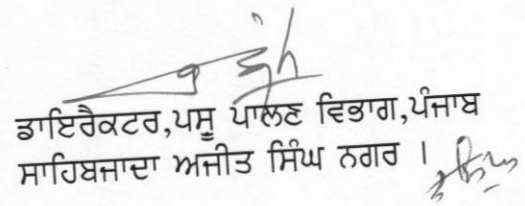 ਡਾਇਰੈਕਟਰ,ਪਸੂ ਪਾਲਣ ਵਿਭਾਗ,ਪੰਜਾਬ
ਸਾਹਿਬਜਾਦਾ ਅਜੀਤ ਸਿੰਘ ਨਗਰ ।